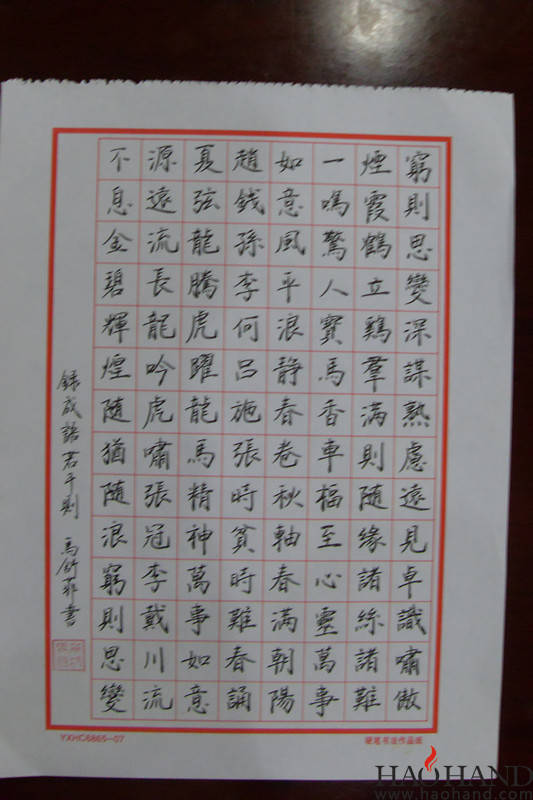 窮則思變深謀熟慮遠見卓識嘯傲
煙霞鶴立鷄羣滿則隨緣諸絲諸難
一鳴驚人寶馬香車福至心靈萬事
如意風平浪静春卷秋軸春滿朝陽
趙錢孫李何吕施張時貧時難春誦
夏弦龍騰虎躍龍馬精神萬事如意
源遠流長龍吟虎嘯張冠李戴川流
不息金碧輝煌隨猶隨浪窮則思變
錄成語若干則 馬舒菲書
YXHC6865-07
硬笔书法作品纸
HAOHAND
www.haohand.com